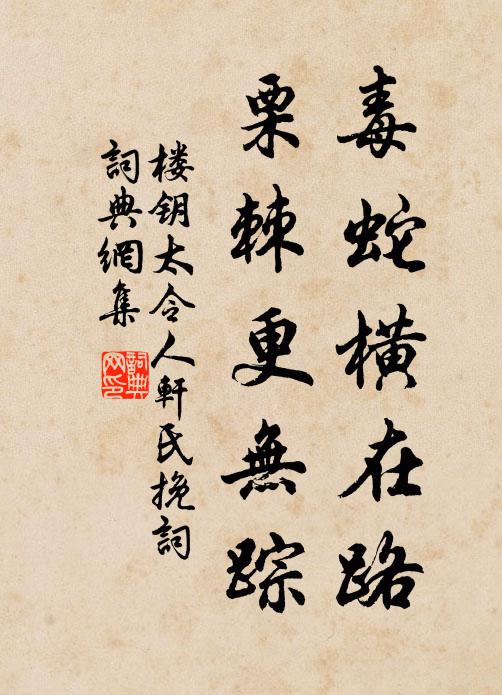 毒蛇橫在路
栗棘更無踪
楼钥太令人軒氏挽詞
詞典網集
詞典
网印